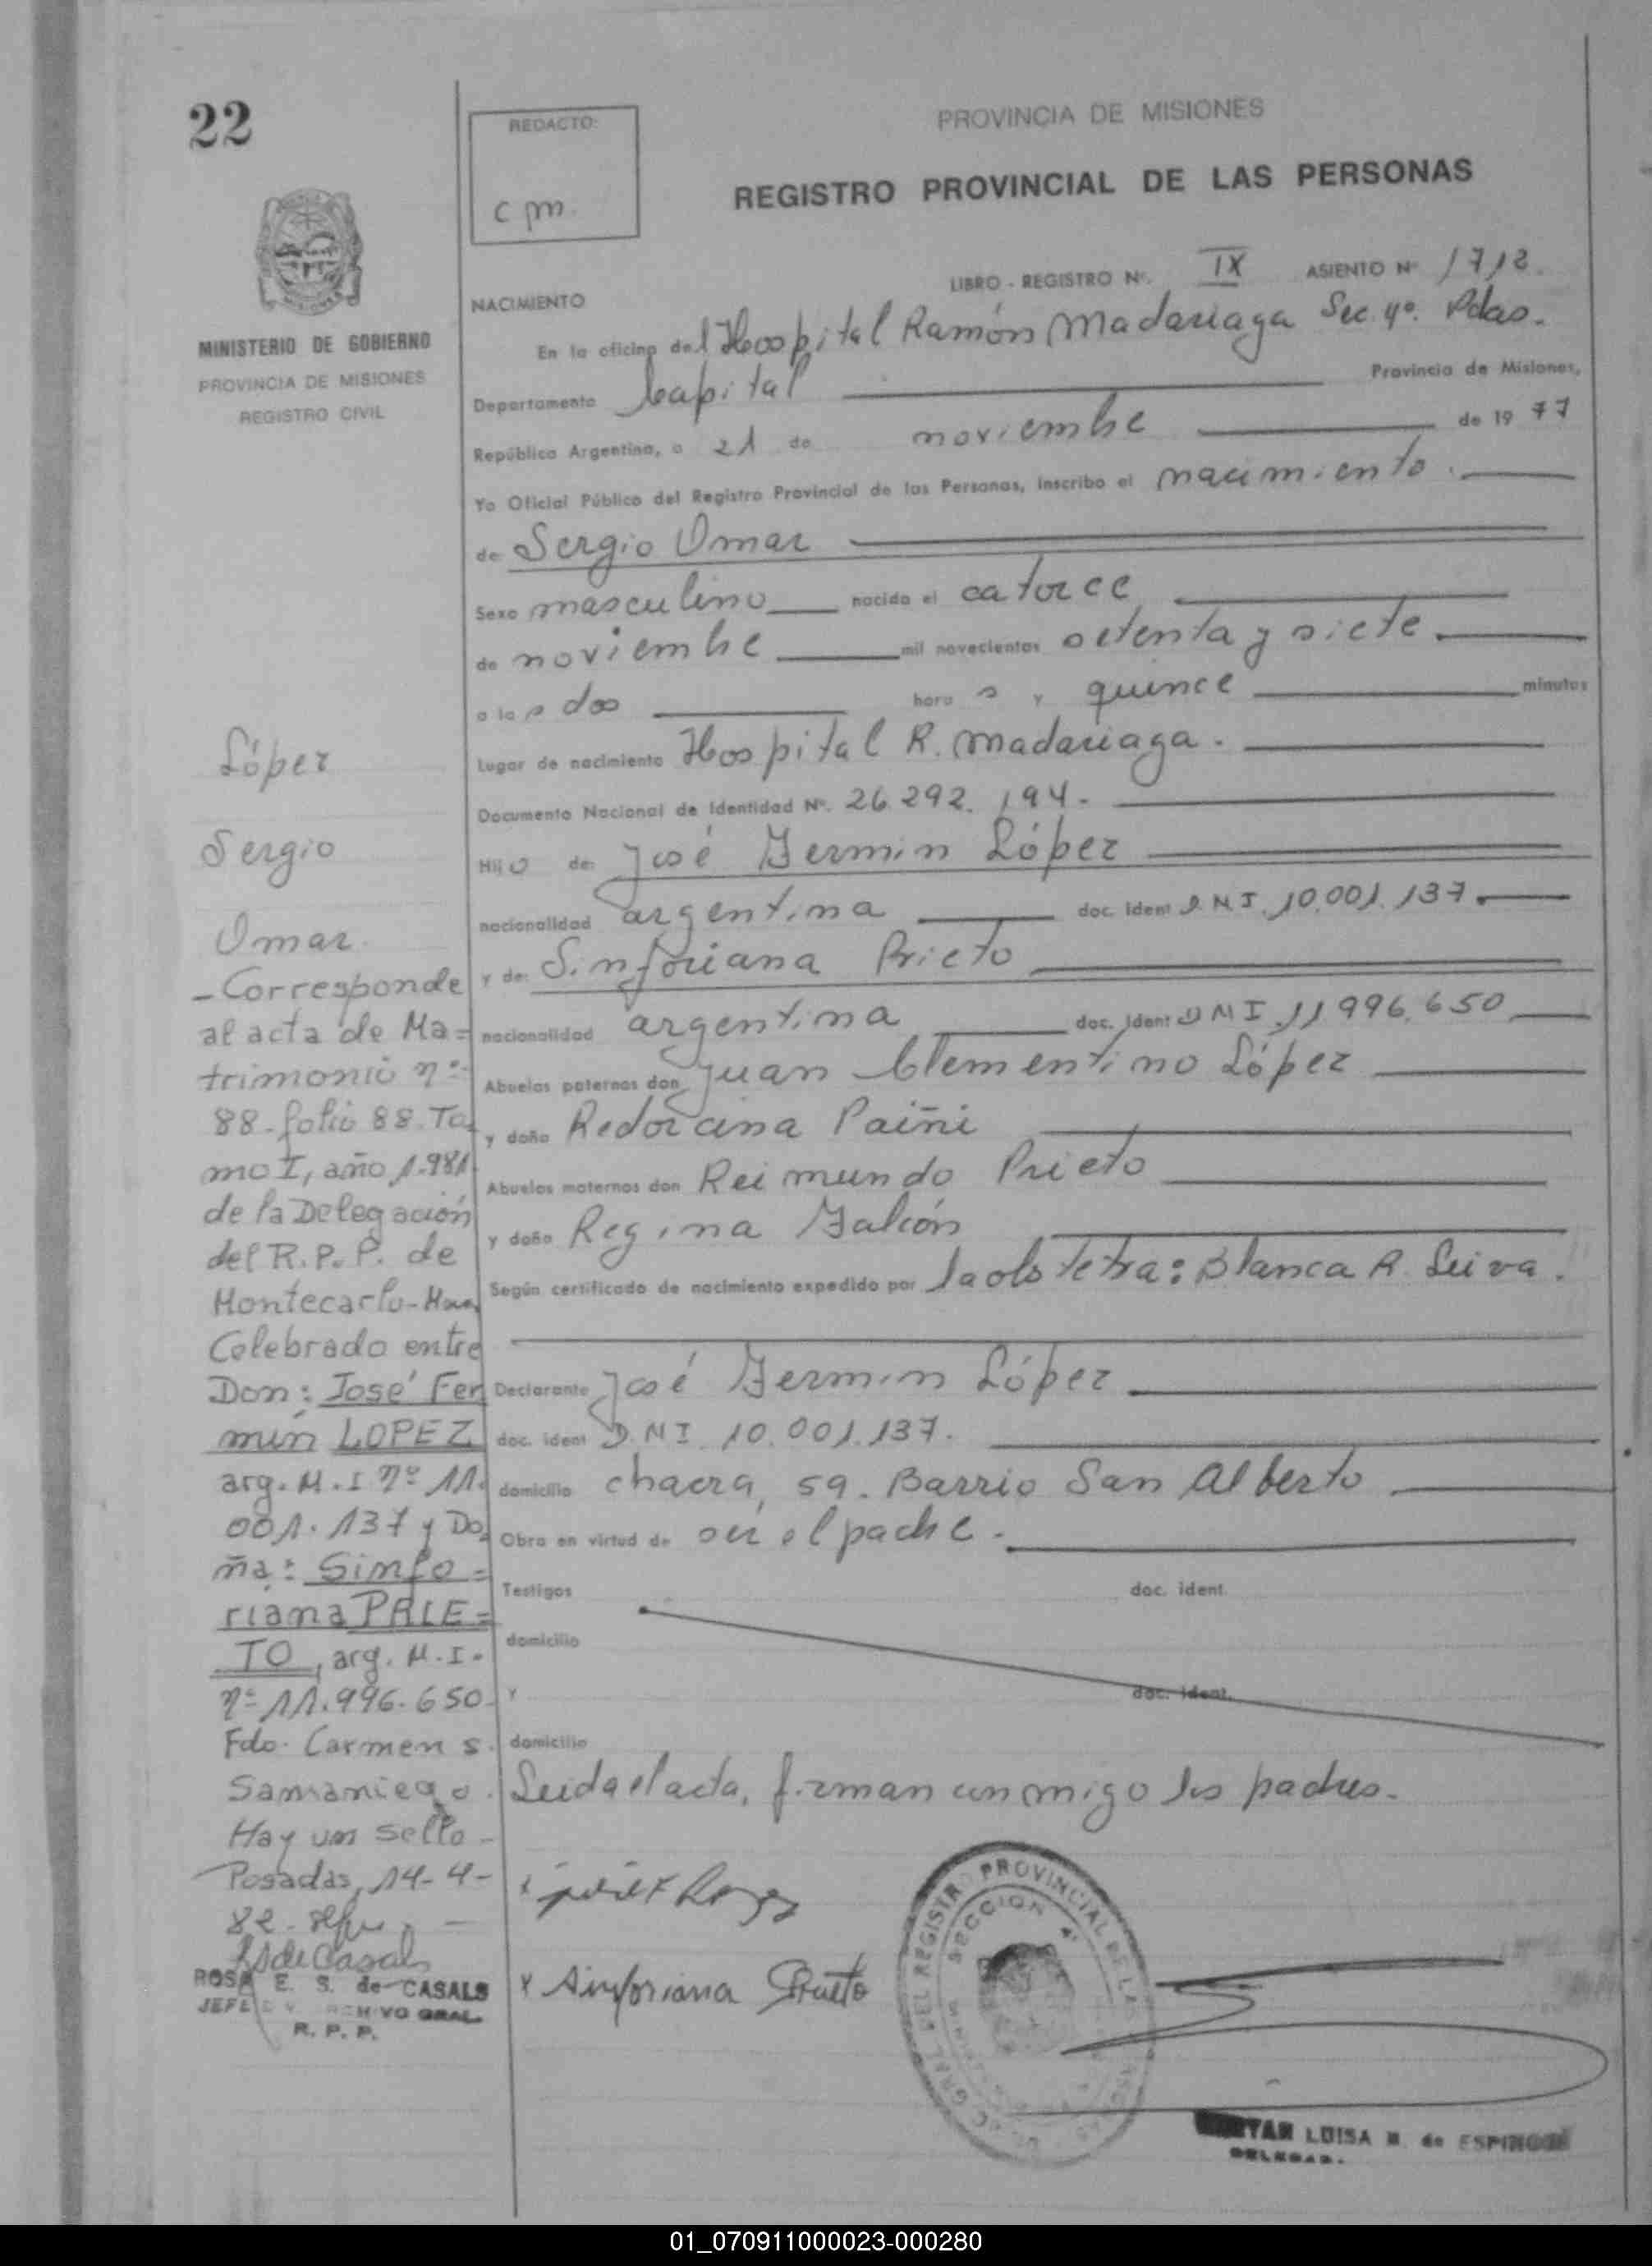 22
REDACTO:
c m.
PROVINCIA DE MISIONES
REGISTRO PROVINCIAL DE LAS PERSONAS
MINISTERIO DE GOBIERNO
PROVINCIA DE MISIONES
REGISTRO CIVIL
LIBRO - REGISTRO Nº. IX ASIENTO Nº 1712.
NACIMIENTO
En la oficina del Hospital Ramón Madariaga Sec. 4º. Pdas.
Departamento Capital Provincia de Misiones,
República Argentina, a 21 de noviembre de 1977
Yo Oficial Público del Registro Provincial de las Personas, inscribo el nacimiento.
de Sergio Omar
Sexo masculino nacido el catorce
de noviembre mil novecientos setenta y siete.
a las dos hora s y quince minutos
Lugar de nacimiento Hospital R. Madariaga.
Documento Nacional de Identidad Nº. 26.292.194.
Hijo de: José Fermin López
nacionalidad argentina doc. ident D.N.I. 10.001.137.
y de: Sinforiana Prieto
nacionalidad argentina doc. ident D N I. 11996.650
Abuelos paternos don Juan Clementino López
y doña Redorcina Paiñi
Abuelos maternos don Reimundo Prieto
y doña Regina Falcón
Según certificado de nacimiento expedido por la obstetra: Blanca R. Leiva.
Declarante José Fermin López
doc. ident D.N I. 10.001.137.
domicilio chacra, 59. Barrio San Alberto
Obra en virtud de ser el padre.
Testigos doc. ident.
domicilio
y doc. ident.
domicilio
Leida el acta, firman conmigo los padres.
x
x Sinforiana Prieto
López
Sergio
Omar.
- Corresponde
al acta de Ma=
trimonio nº
88-folio 88. To
mo I, año 1.981
de la Delegación
del R.P.P. de
Montecarlo-
Celebrado entre
Don: José Fer
min LOPEZ
arg. M.I nº 11.
001.137 y Do
ña: Sinfo=
riana PRIE=
TO, arg. M.I.
nº 11.996.650-
Fdo. Carmen S.
Samaniego.
Hay un sello-
Posadas, 14-4-
82-
ROSA E. S. de CASALS
JEFE ARCHIVO GRAL
R. P. P.
REGISTRO PROVINCIAL DE LAS
SECCION 4ª
LUISA M. de ESPINOSA
DELEGAD.
01_070911000023-000280